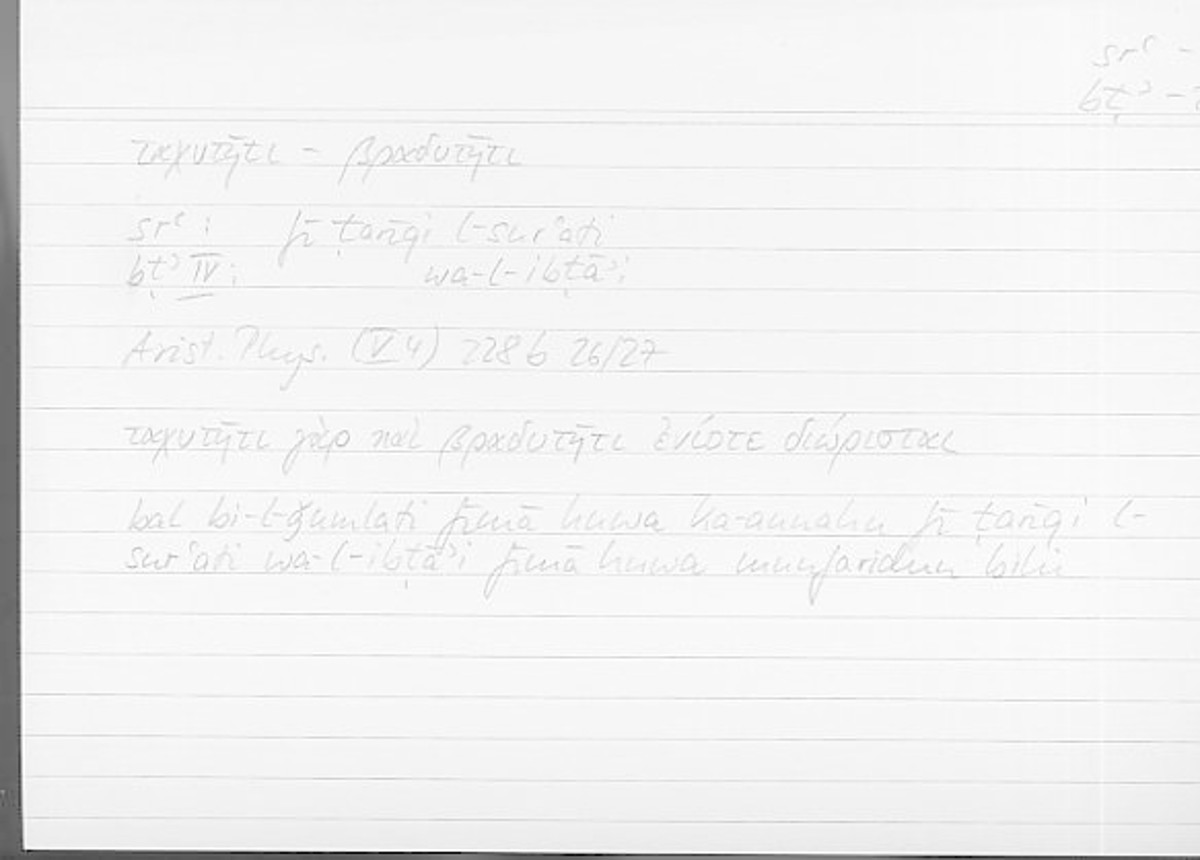 srʿ -
bṭʾ -
ταχυτῆτι - βραδυτῆτι
srʿ: fī ṭarīqi l-surʿati
bṭʾ IV: wa-l-ibṭāʾi
Arist. Phys. (V 4) 228 b 26/27
ταχυτῆτι γὰρ καὶ βραδυτῆτι ἐνίοτε διώρισται
bal bi-l-ǧumlati fīmā huwa ka-annahu fī ṭarīqi l-
surʿati wa-l-ibṭāʾi fīmā huwa munfaridun bihi